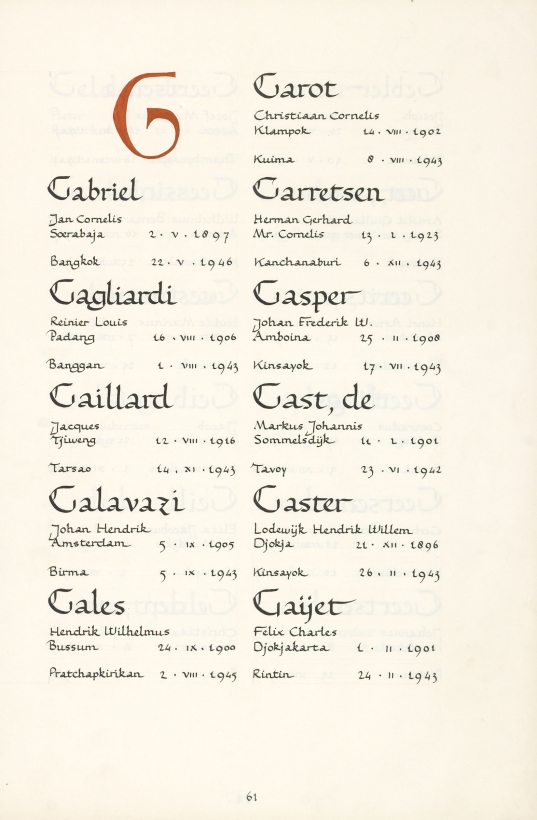 G
Gabriel
Jan Cornelis
Soerabaja 2 · V · 1897
Bangkok 22 · V · 1946
Gagliardi
Reinier Louis
Padang 16 · VIII · 1906
Banggan 1 · VIII · 1943
Gaillard
Jacques
Tjiweng 12 · VIII · 1916
Tarsao 14 · XI · 1943
Galavazi
Johan Hendrik
Amsterdam 5 · IX · 1905
Birma 5 · IX · 1943
Gales
Hendrik Wilhelmus
Bussum 24 · IX · 1900
Pratchapkirikan 2 · VIII · 1945
Garot
Christiaan Cornelis
Klampok 14 · VIII · 1902
Kuima 8 · VIII · 1943
Garretsen
Herman Gerhard
Mr. Cornelis 13 · 1 · 1923
Kanchanaburi 6 · XII · 1943
Gasper
Johan Frederik W.
Amboina 25 · II · 1908
Kinsayok 17 · VII · 1943
Gast, de
Markus Johannis
Sommelsdijk 11 · 1 · 1901
Tavoy 23 · VI · 1942
Gaster
Lodewijk Hendrik Willem
Djokja 21 · XII · 1896
Kinsayok 26 · II · 1943
Gaijet
Félix Charles
Djokjakarta 1 · II · 1901
Rintin 24 · II · 1943
61